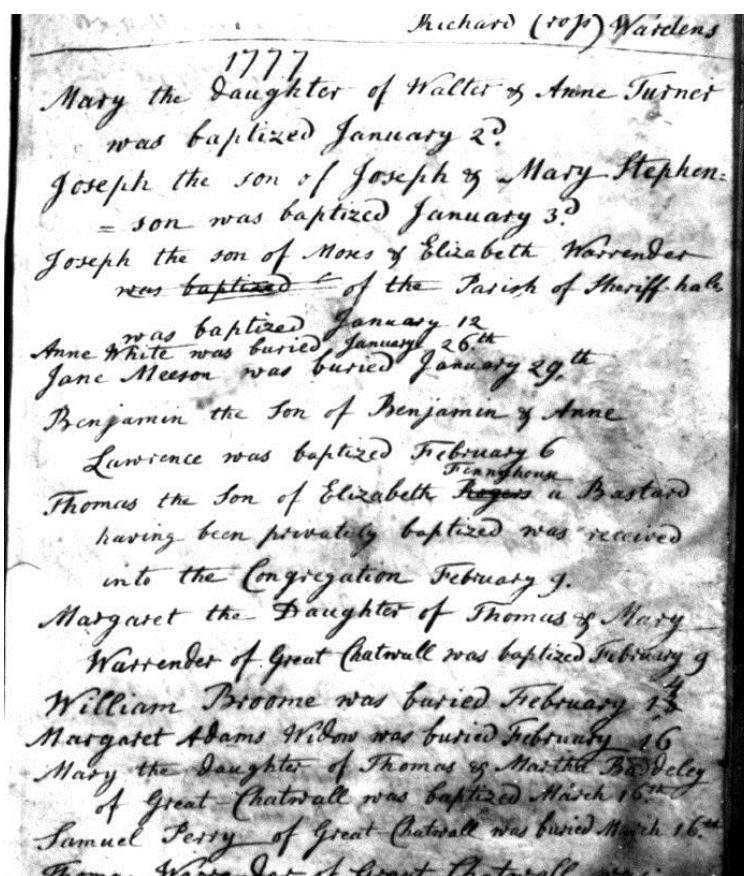 Richard Cross) Wardens
1777
Mary the Daughter of Walter & Anne Turner
was baptized January 2d.
Joseph the son of Joseph & Mary Stephen=
= son was baptized January 3d
Joseph the son of Moses & Elizabeth Warrender
was baptized of the Parish of Sheriff-hales
was baptized January 12
Anne White was buried January 26.th
Jane Meeson was buried January 29.th
Benjamin the Son of Benjamin & Anne
Lawrence was baptized February 6
Fennyhouse
Thomas the Son of Elizabeth Rogers a Bastard
having been privately baptized was received
into the Congregation February 9.
Margaret the Daughter of Thomas & Mary
Warrender of Great Chatwall was baptized February 9
William Broome was buried February 14
Margaret Adams Widow was buried February 16
Mary the Daughter of Thomas & Martha Baddeley
of Great-Chatwall was baptized March 16.th
Samuel Perry of Great-Chatwall was buried March 16.th
Thomas Warrender of Great Chatwall was